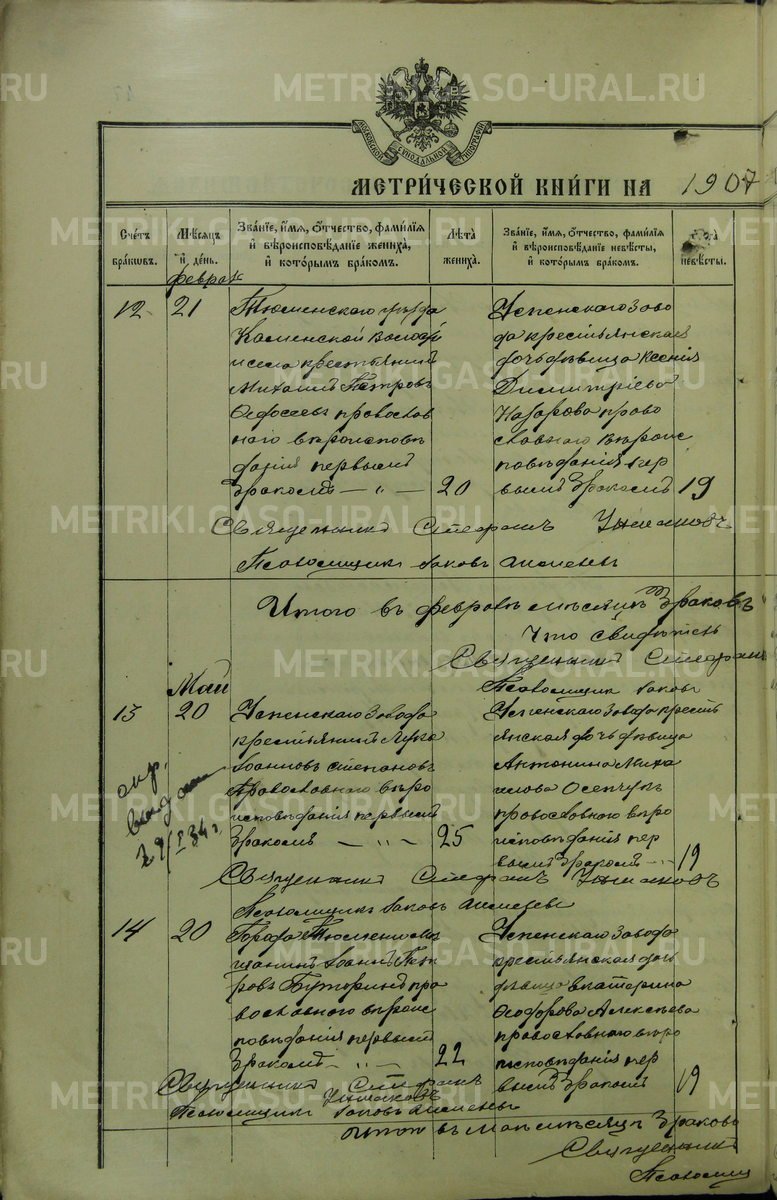 МЕТРИ́ЧЕСКОЙ КНИ́ГИ НА 1907
МОСКОВСКОЙ СѴНОДАЛЬНОЙ ТИПОГРАФІИ
Сче́тъ бра́ковъ.
Мѣ́сяцъ и҆ де́нь.
Зва́нїе, и҆́мя, ѻ҆́тчество, фами́лїя
и҆ вѣроисповѣ́данїе жениха̀,
и҆ кото́рымъ бра́комъ.
Лѣ́та жениха̀.
Зва́нїе, и҆́мя, ѻ҆́тчество, фами́лїя
и҆ вѣроисповѣ́данїе невѣ́сты,
и҆ кото́рымъ бра́комъ.
невѣ́сты.
Феврал
12 21
Тюменскаго уѣзда
Каменской волости
и села крестьянинъ
Михаилъ Петровъ
Федосѣевъ православ
наго вѣроисповѣ
данія первымъ
бракомъ — „ — 20
Успенскаго Заво
да крестьянская
дочь дѣвица Ксенія
Димитріева
Назарова право
славнаго вѣроис
повѣданія пер
вымъ бракомъ 19
Священникъ Стефанъ
Псаломщикъ Іаковъ
Итого въ февралѣ мѣсяцѣ браковъ
Что свидѣтель
Священникъ Стефанъ
Псаломщик Іаковъ
Май
13 20
Успенскаго Завода
крестьянинъ Лука
Іоанновъ Степановъ
православнаго вѣро
исповѣданія первымъ
бракомъ — „ — 25
Успенскаго Завода крестъ
янская дочь дѣвица
Антонина Миха
илова
православнаго вѣро
исповѣданія пер
вымъ бракомъ — 19
выдан
Священникъ Стефанъ
Псаломщикъ Іаковъ
14 20
Города Тюмени мѣ
щанинъ Іоаннъ Пет
ровъ Буторинъ пра
вославнаго вѣроис
повѣданія первымъ
бракомъ — „ — 22
Успенскаго Завода
крестьянская доч
дѣвица Екатерина
Феодорова Алексѣева
православнаго вѣро
исповѣданія пер
вымъ бракомъ 19
Священникъ Стефанъ
Псаломщикъ Іаковъ
Итого въ Маѣ мѣсяцѣ браковъ
Священникъ
Псаломщ
METRIKI.GASO-URAL.RU